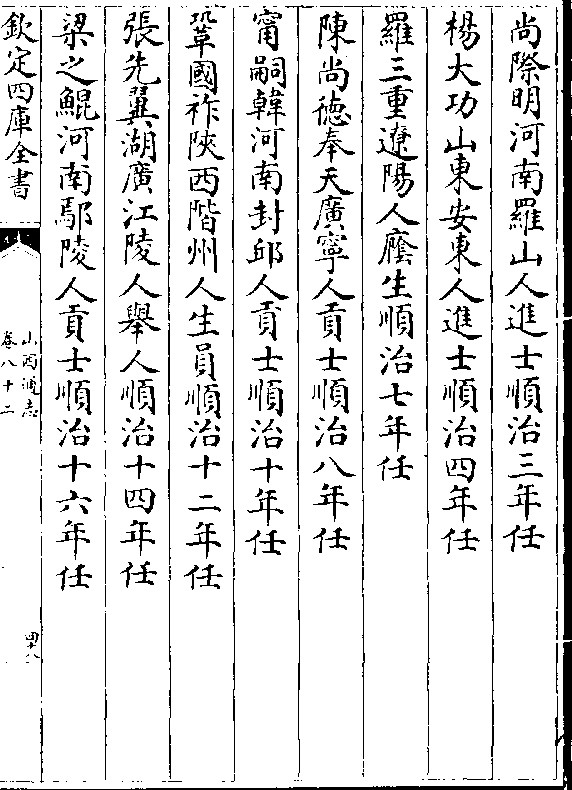 尚際明河南羅山人進士順治三年任
楊大功山東安東人進士順治四年任
羅三重遼陽人廕生順治七年任
陳尚德奉天廣寧人貢士順治八年任
甯嗣韓河南封邱人貢士順治十年任
鞏國祚陝西階州人生員順治十二年任
張先翼湖廣江陵人舉人順治十四年任
梁之鯤河南鄢陵人貢士順治十六年任
欽定四庫全書
山西通志
卷八十二
四十八